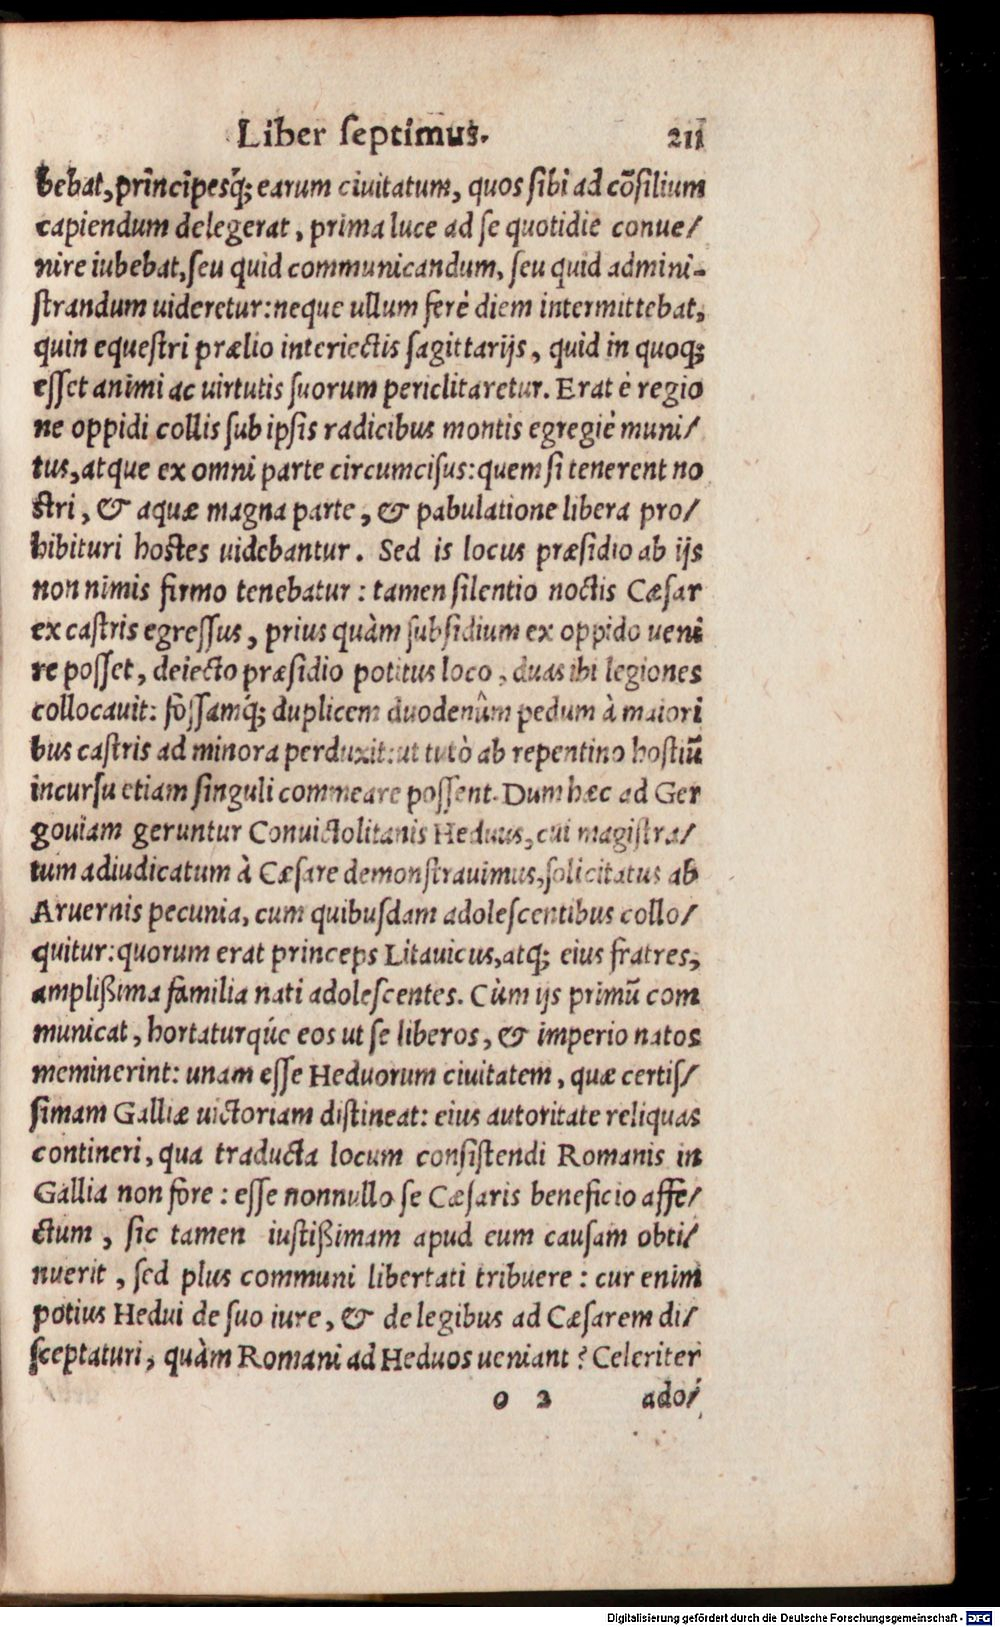 Liber septimus. 211
bebat, principesq́; earum ciuitatum, quos sibi ad cōsilium
capiendum delegerat, prima luce ad se quotidie conue/
nire iubebat, seu quid communicandum, seu quid admini-
strandum uideretur: neque ullum ferè diem intermittebat,
quin equestri prælio interiectis sagittarijs, quid in quoq;
esset animi ac uirtutis suorum periclitaretur. Erat è regio
ne oppidi collis sub ipsis radicibus montis egregiè muni/
tus, atque ex omni parte circumcisus: quem si tenerent no
stri, & aquæ magna parte, & pabulatione libera pro/
hibituri hostes uidebantur. Sed is locus præsidio ab ijs
non nimis firmo tenebatur: tamen silentio noctis Cæsar
ex castris egressus, prius quàm subsidium ex oppido ueni
re posset, deiecto præsidio potitus loco, duas ibi legiones
collocauit: fossamq́; duplicem duodenûm pedum à maiori
bus castris ad minora perduxit: ut tutò ab repentino hostiū
incursu etiam singuli commeare possent. Dum hæc ad Ger
gouiam geruntur Conuictolitanis Heduus, cui magistra/
tum adiudicatum à Cæsare demonstrauimus, solicitatus ab
Aruernis pecunia, cum quibusdam adolescentibus collo/
quitur: quorum erat princeps Litauicus, atq; eius fratres,
amplißima familia nati adolescentes. Cùm ijs primū com
municat, hortaturqúe eos ut se liberos, & imperio natos
meminerint: unam esse Heduorum ciuitatem, quæ certis/
simam Galliæ uictoriam distineat: eius autoritate reliquas
contineri, qua traducta locum consistendi Romanis in
Gallia non fore: esse nonnullo se Cæsaris beneficio affe/
ctum, sic tamen iustißimam apud eum causam obti/
nuerit, sed plus communi libertati tribuere: cur enim
potius Hedui de suo iure, & de legibus ad Cæsarem di/
sceptaturi, quàm Romani ad Heduos ueniant? Celeriter
o 2 ado/
Digitalisierung gefördert durch die Deutsche Forschungsgemeinschaft - DFG